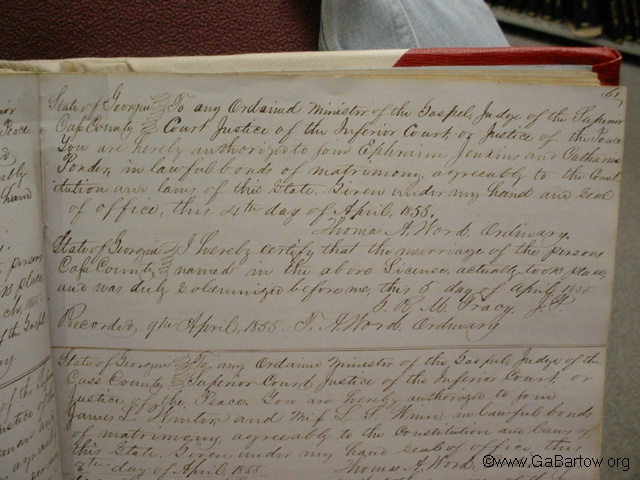 State of Georgia To any Ordained Minister of the Gospel, Judge of the Superior
Cass County Court Justice of the Inferior Court, or Justice of the Peace
You are hereby authorized to join Ephraim Jenkins and Catharine
Ponder, in lawful bonds of matrimony agreeably to the Const
itution and laws of this State. Given under my hand and seal
of office, this 4th day of April, 1855.
Thomas A. Word, Ordinary.
State of Georgia I hereby certify that the marriage of the persons
Cass County, named in the above License, actually took place,
and was duly solemnized before me, this 5 day of April 1855
R. M. Tracy, J.P.
Recorded 9th April, 1855. T. A. Word Ordinary
State of Georgia To, any Ordained Minister of the Gospel, Judge of the
Cass County, Superior Court, Justice of the Inferior Court, or
Justice of the Peace. You are hereby authorized to join
James L. and Miss L. S. in lawful bonds
of matrimony, agreeably to the Constitution and laws of
this State. Given under my hand seal of office, this
8th day of April 1855 Thomas A. Word,
©www.GaBartow.org